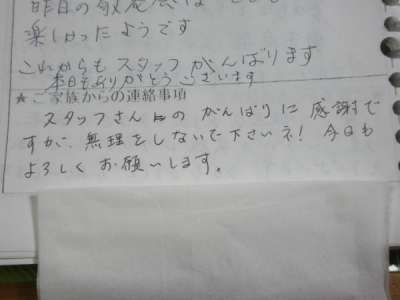 昨日の敬老会は とても
楽しかったようです
これからも スタッフ がんばります
本日もありがとうございます
★ご家族からの連絡事項
スタッフさんの がんばりに 感謝で
すが、無理をしないで下さいネ! 今日も
よろしく お願いします。